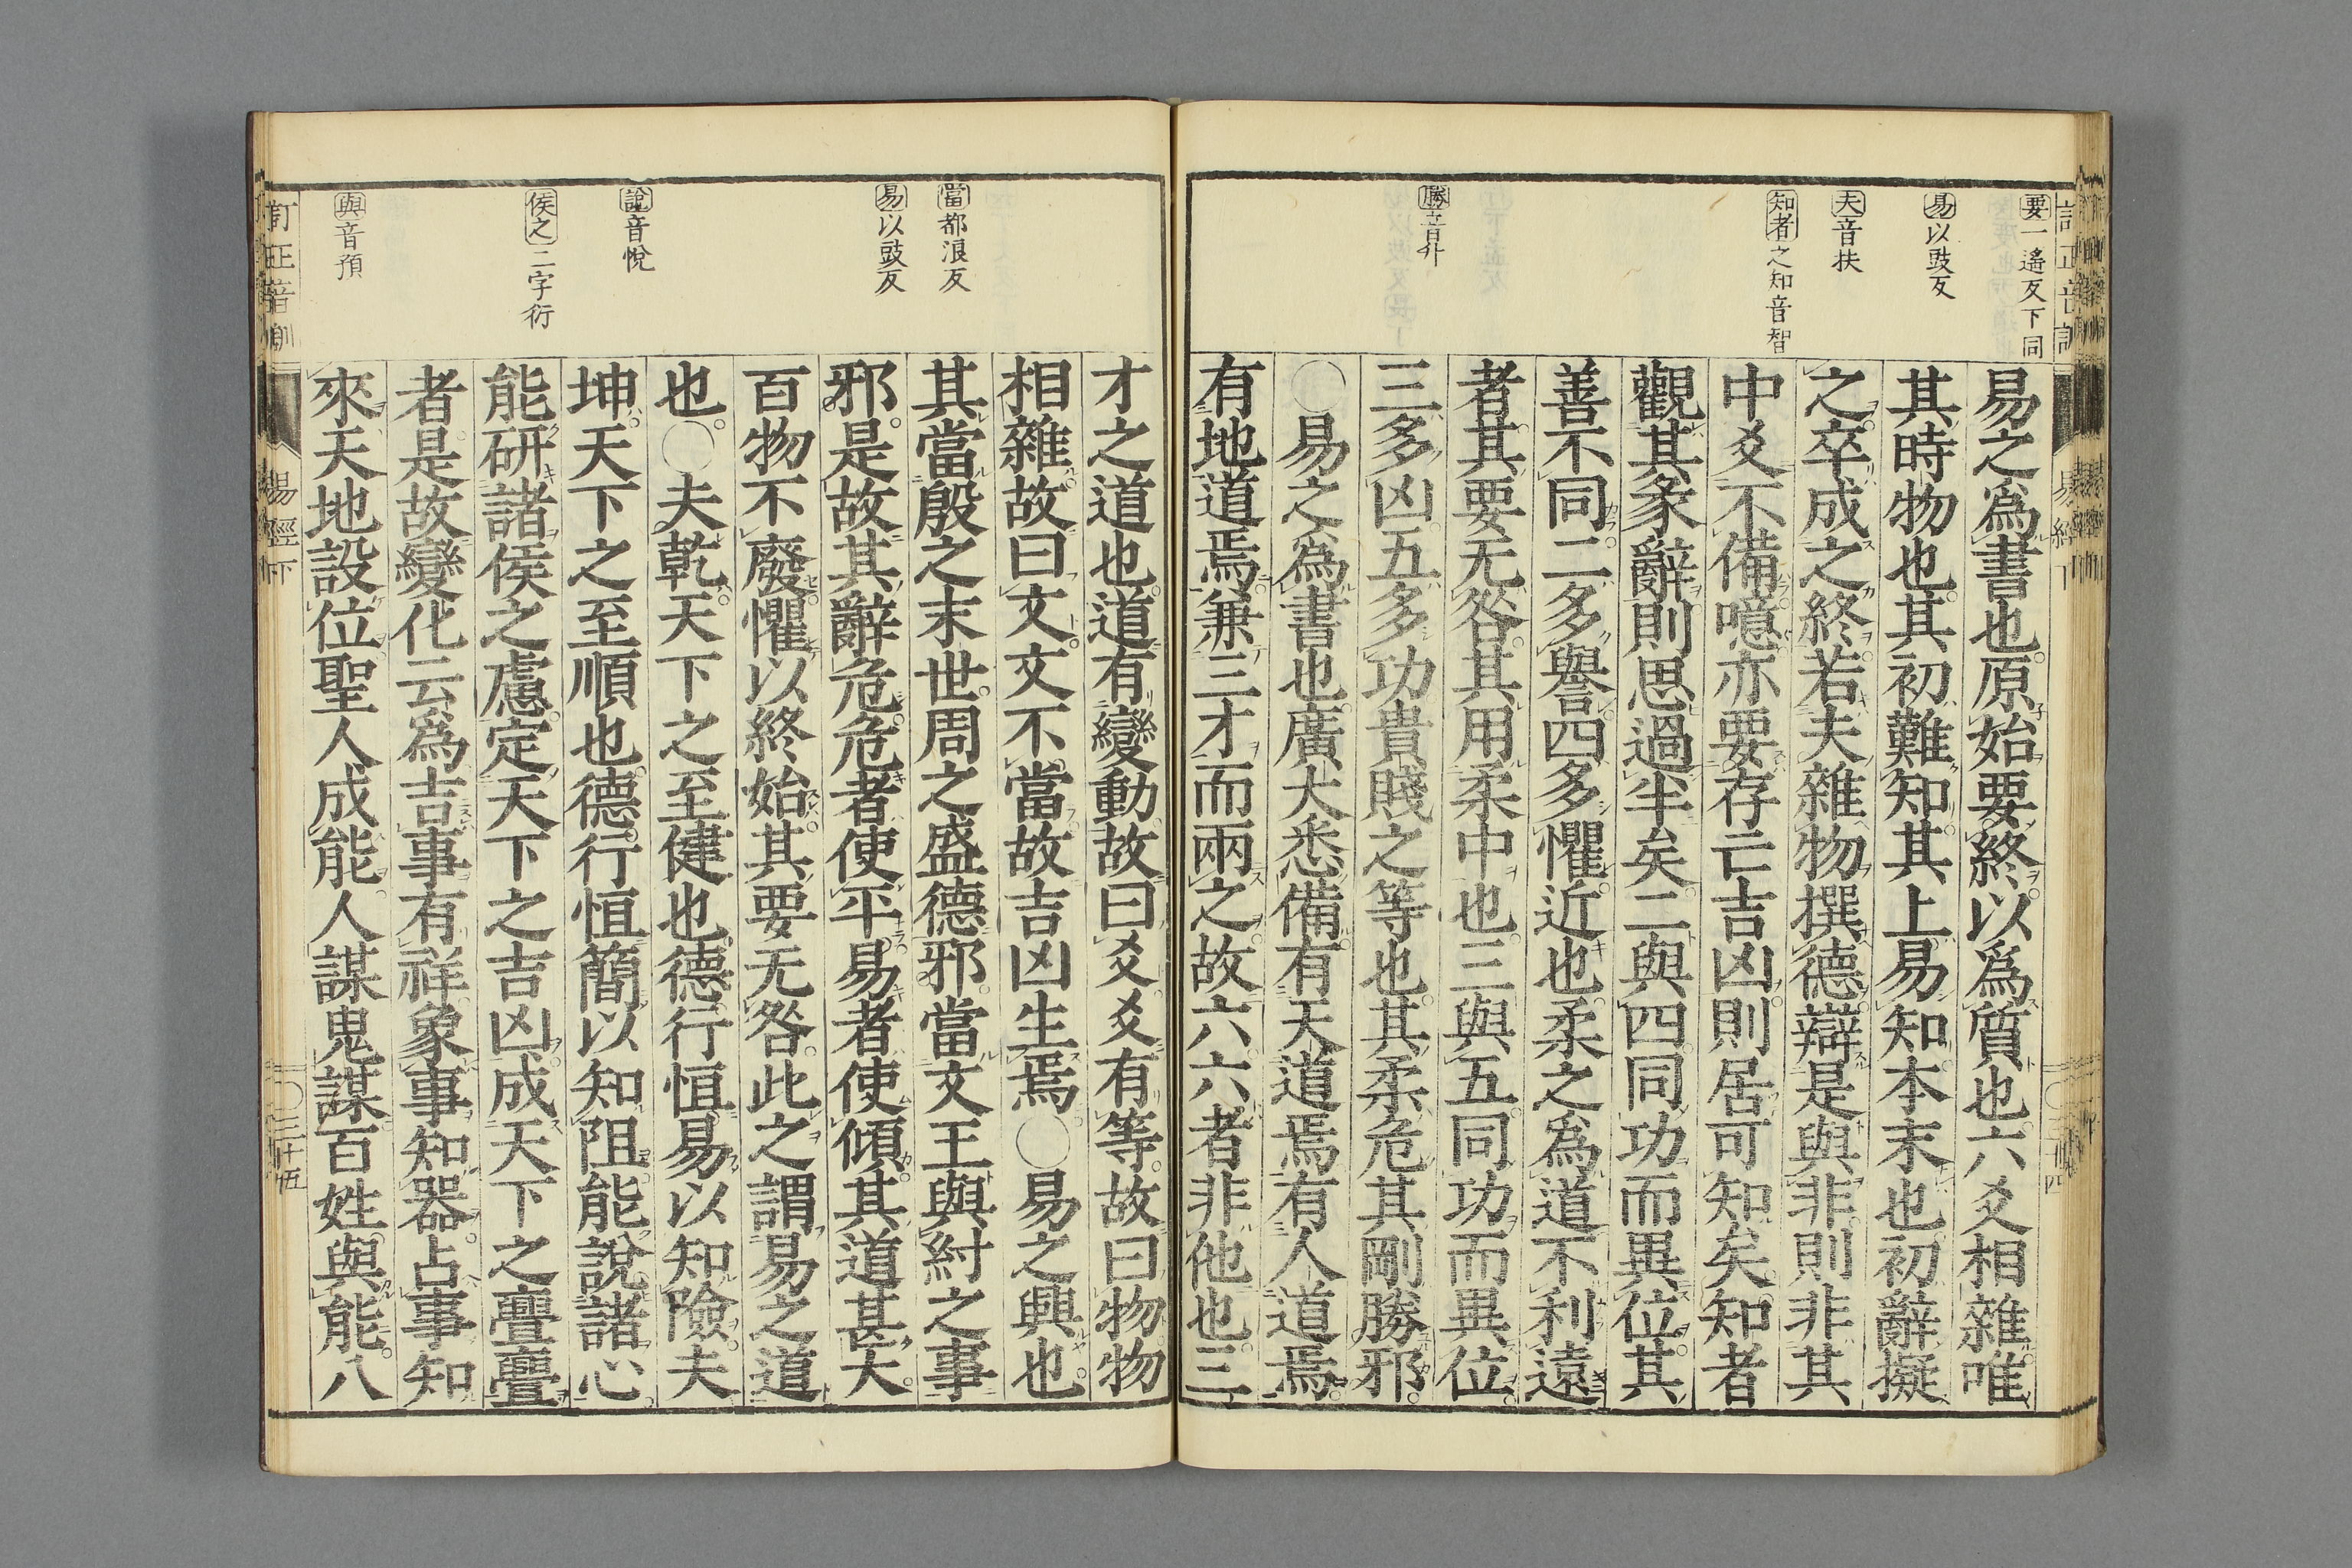 要一遙反下同
易以豉反
夫音扶
知者之知音智
勝音升
易之爲書也原始要終以爲質也六爻相雜唯
其時物也其初難知其上易知本末也初辭擬
之卒成之終若夫雜物撰德辯是與非則非其
中爻不備噫亦要存亡吉凶則居可知矣知者
觀其彖辭則思過半矣二與四同功而異位其
善不同二多譽四多懼近也柔之爲道不利遠
者其要无咎其用柔中也三與五同功而異位
三多凶五多功貴賤之等也其柔危其剛勝邪
○易之爲書也廣大悉備有天道焉有人道焉
有地道焉兼三才而兩之故六六者非他也三
當都浪反
易以豉反
說音悅
侯之二字衍
與音預
才之道也道有變動故曰爻爻有等故曰物物
相雜故曰文文不當故吉凶生焉○易之興也
其當殷之末世周之盛德邪當文王與紂之事
邪是故其辭危危者使平易者使傾其道甚大
百物不廢懼以終始其要无咎此之謂易之道
也○夫乾天下之至健也德行恒易以知險夫
坤天下之至順也德行恒簡以知阻能說諸心
能研諸侯之慮定天下之吉凶成天下之亹亹
者是故變化云爲吉事有祥象事知器占事知
來天地設位聖人成能人謀鬼謀百姓與能八
訂正音訓
易經下
三十五